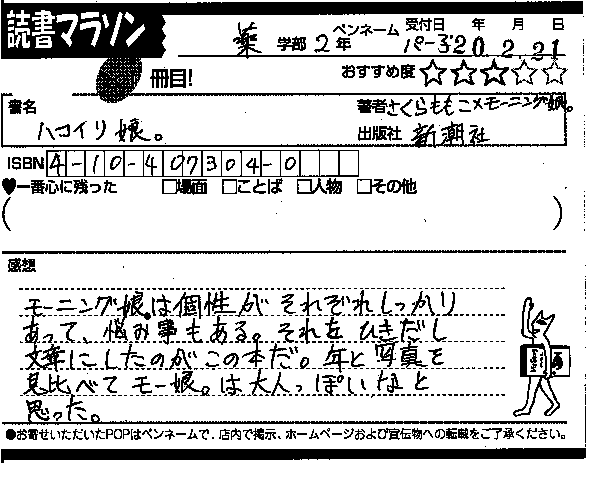 読書マラソン
薬 学部 2年 ペンネーム 受付日 年 月 日
20.2.21
冊目! おすすめ度 ★★★☆☆
書名 著者 さくらももこ×モーニング娘。
ハコイリ娘。 出版社 新潮社
ISBN 4-10-407304-0
♥一番心に残った □場面 □ことば □人物 □その他
( )
感想
モーニング娘。は個性がそれぞれしっかり
あって、悩み事もある。それをひきだし
文章にしたのがこの本だ。年と写真を
見比べてモー娘。は大人っぽいなと
思った。
●お寄せいただいたPOPはペンネームで、店内で掲示、ホームページおよび宣伝物への転載をご了承ください。